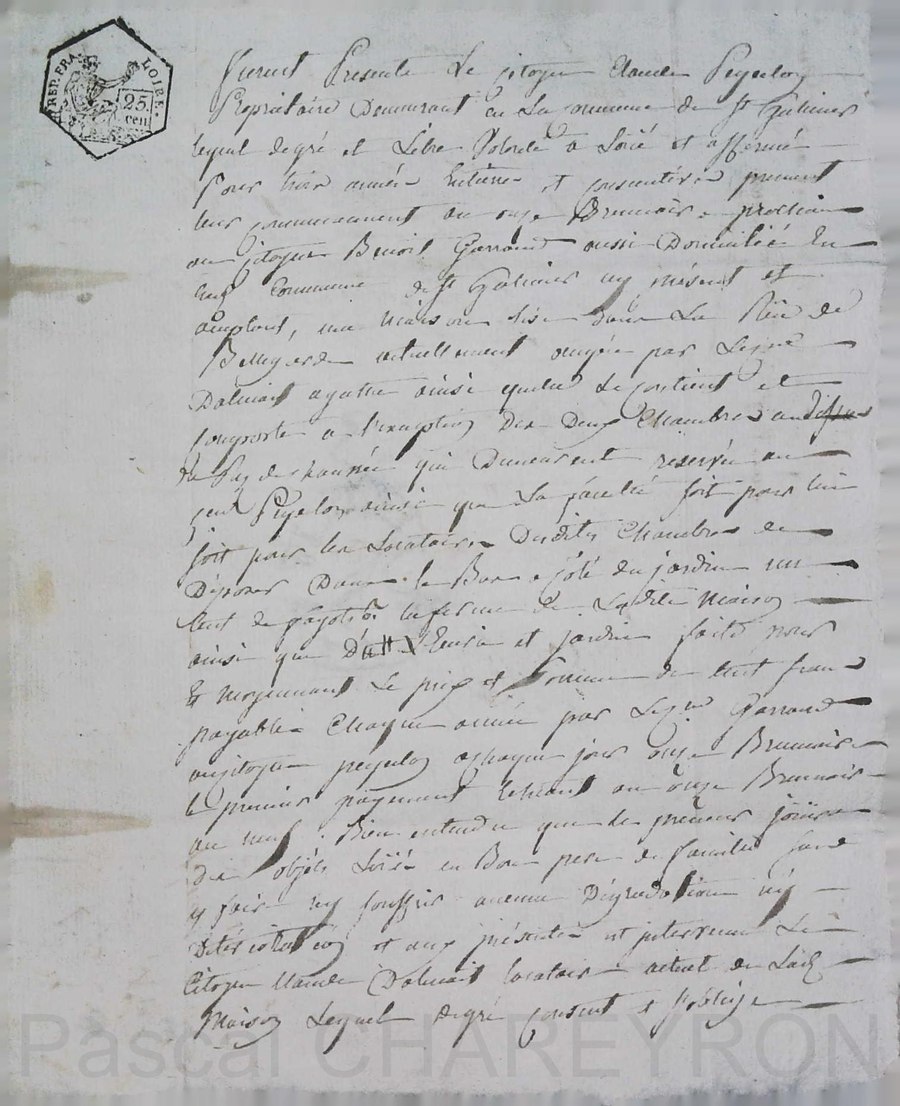 REP. FRA. LOIRE.
25. cen
furent Presente Le citoyen Claude Peyrelon
Propriétaire Demeurant en La commune de St Galmier
lequel degré et Libre Volonté a Loüé et affermé
Pour trois années Entières et consecutives prenant
leur commencement au onze Brumaire prochain
au citoyen Benoit Garraud aussi Domicilié En
commune de St Galmier icy présent et
acceptant, une Maison sise dans La Rüe de
Bellegarde actuellement ocupée par
Dalmais agathe ainsi quelle se contient et
comporte a l'exception des Deux Chambres audessus
du Rez de chaussée qui Demeurent reservée au
ainsi que La faculté soit pour lui
soit pour les Locataires Desdites Chambres de
Déposer Dans le Bas a coté du jardin un
cent de fagots la ferme de Ladite Maison
ainsi que D Ecurie et jardin faite pour
Et moyennant Le prix et Somme de cent francs
payable Chaque année par Garraud
aucitoyen peyrelon achaque jour onze Brumaire
le premier payement Echéant au onze Brumaire
an neuf. Bien entendu que le preneur joüira
des objets Loüé en Bon pere de famille sans
y faire ny souffrir aucune Dégradation ny
Déterioration et aux présentes est intervenu Le
Citoyen Claude Dalmais locataire actuel de
Maison Lequel degré consent et Soblige
Pascal CHAREYRON